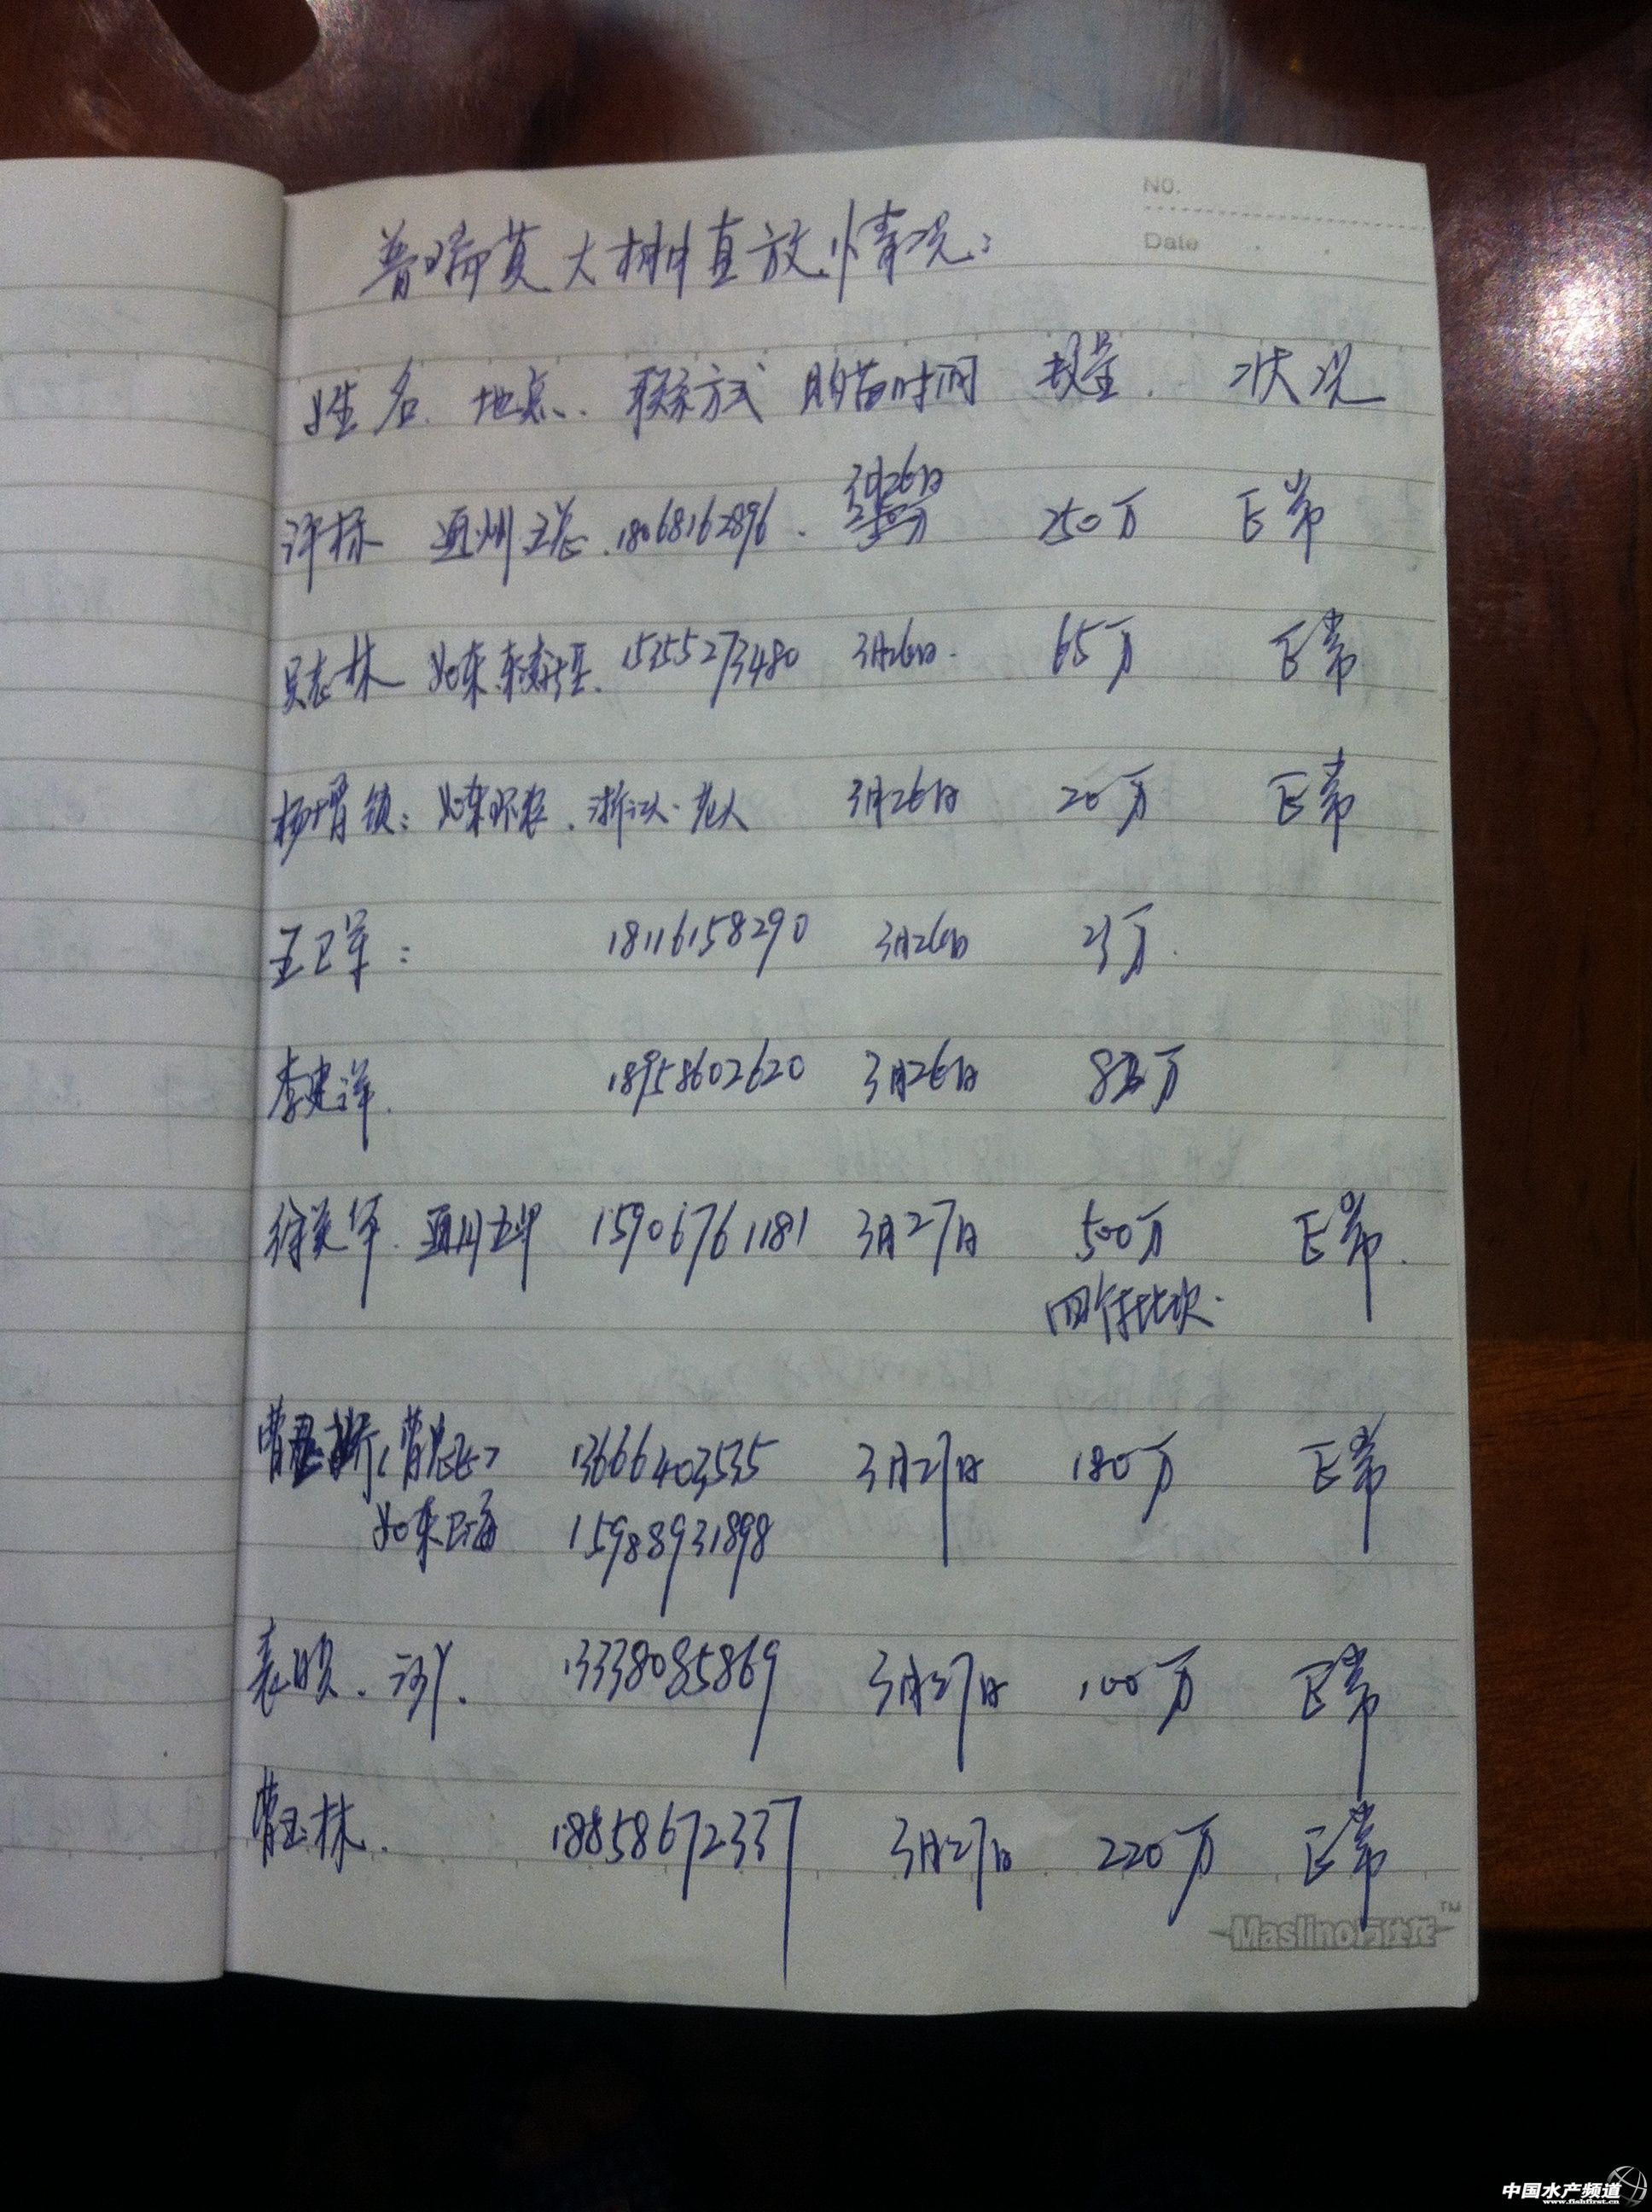 No.
Date
普瑞莫大棚直放情况:
姓名. 地点. 联系方式 购苗时间 数量. 状况
许标 通州 18068162896. 3月26日 250万 正常
吴志林 如东 15355273480 3月26日. 65万 正常
杨增锁: 如东环农. 浙江人. 老人 3月26日 20万 正常
王卫军: 18116158290 3月26日 万.
李建洋. 18958602620 3月26日 万
徐美华. 通州 15906761181 3月27日 500万 正常.
四个批次.
曹 (曹) 13666403535 3月27日 180万 正常
如东 15988931898
袁 . 13338085869 3月27日 100万 正常
曹玉林. 18858672337 3月27日 220万 正常
Maslino玛仕龙™
中国水产频道
www.fishfirst.cn